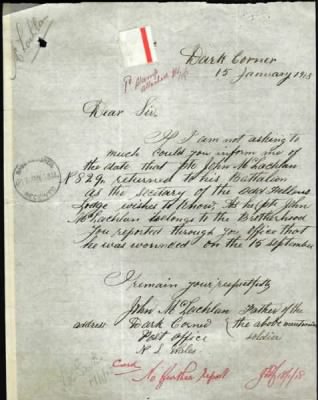 Dark Corner
15 January 1918
Dear Sir,
If I am not asking to
much could you inform me of
the date that Pte John McLachlan
No 829 returned to his Battalion
as the secetary of the Odd Fellows
Lodge wishes to know, As he Pte John
McLachlan belongs to the Brotherhood
You reported through you office that
he was wounded on the 15 september
I remain your respectfully
John McLachlan Father of the
address Dark Corner the above mentioned
Post office soldier
N S Wales
Card
No further report